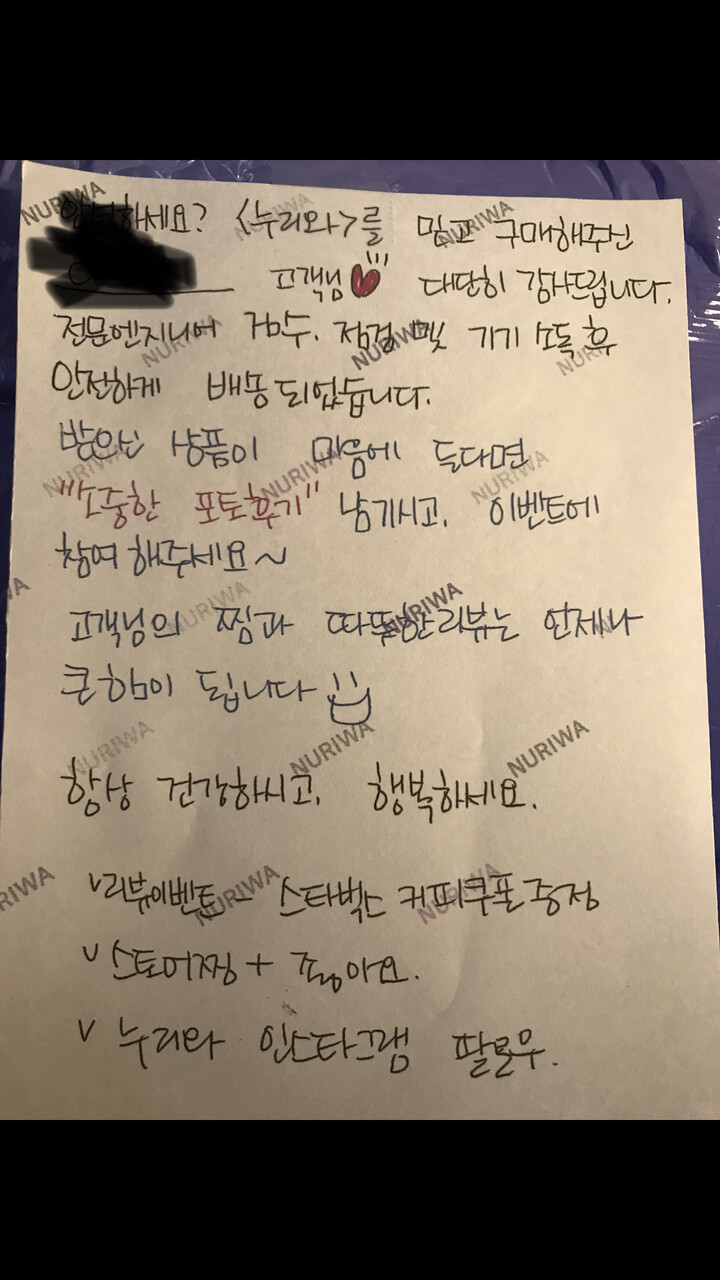 안녕하세요? <누리와>를 믿고 구매해주신
고객님 대단히 감사드립니다.
전문엔지니어 검수. 점검 및 기기 소독 후
안전하게 배송되었습니다.
받으신 상품이 마음에 드다면
"소중한 포토후기" 남기시고, 이벤트에
참여해주세요~
고객님의 찜과 따뜻한 리뷰는 언제나
큰힘이 됩니다
항상 건강하시고, 행복하세요.
v 리뷰이벤트 - 스타벅스 커피쿠폰증정
v 스토어찜 + 조항아요.
v 누리와 인스타그램 팔로우.
NURIWA